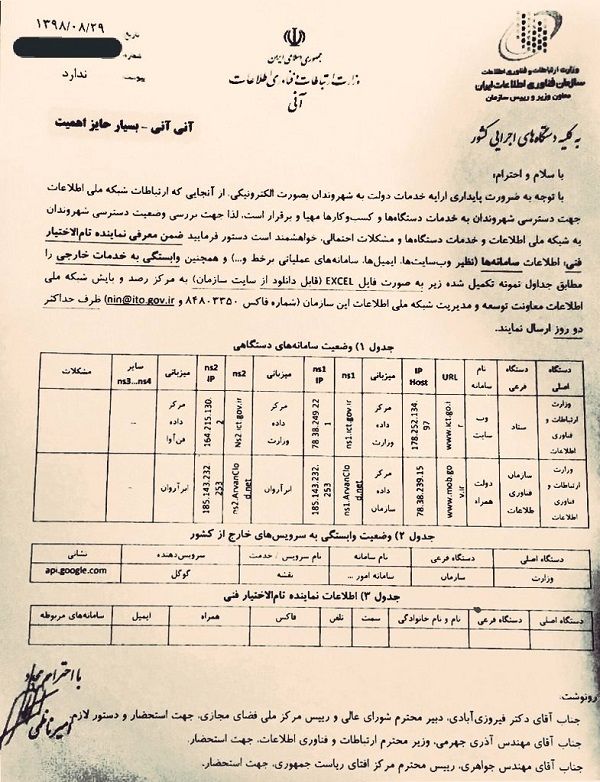 تاریخ ۱۳۹۸/۰۸/۲۹
شماره
پیوست ندارد
جمهوری اسلامی ایران
وزارت ارتباطات و فناوری اطلاعات
آنی
وزارت ارتباطات و فناوری اطلاعات
سازمان فناوری اطلاعات ایران
معاون وزیر و رییس سازمان
آنی آنی - بسیار حایز اهمیت
به کلیه دستگاه‌های اجرایی کشور
با سلام و احترام؛
با توجه به ضرورت پایداری ارایه خدمات دولت به شهروندان بصورت الکترونیکی، از آنجایی که ارتباطات شبکه ملی اطلاعات
جهت دسترسی شهروندان به خدمات دستگاه‌ها و کسب‌وکارها مهیا و برقرار است، لذا جهت بررسی وضعیت دسترسی شهروندان
به شبکه ملی اطلاعات و خدمات دستگاه‌ها و مشکلات احتمالی، خواهشمند است دستور فرمایید ضمن معرفی نماینده تام‌الاختیار
فنی، اطلاعات سامانه‌ها (نظیر وب‌سایت‌ها، ایمیل‌ها، سامانه‌های عملیاتی برخط و...) و همچنین وابستگی به خدمات خارجی را
مطابق جداول نمونه تکمیل شده زیر به صورت فایل EXCEL (قابل دانلود از سایت سازمان) به مرکز رصد و پایش شبکه ملی
اطلاعات معاونت توسعه و مدیریت شبکه ملی اطلاعات این سازمان (شماره فاکس ۸۴۸۰۳۳۵۰ و nin@ito.gov.ir) ظرف حداکثر
دو روز ارسال نمایند.
جدول ۱) وضعیت سامانه‌های دستگاهی
دستگاه اصلی دستگاه فرعی نام سامانه URL IP Host میزبانی ns1 ns1 IP میزبانی ns2 ns2 IP میزبانی سایر ns3...ns4 مشکلات
وزارت ارتباطات و فناوری اطلاعات ستاد وب سایت www.ict.go.ir 178.252.134.97 مرکز داده وزارت ns1.ict.gov.ir 78.38.249.221 مرکز داده وزارت Ns2.ict.gov.ir 164.215.130.2 مرکز داده فن‌آوا ...
وزارت ارتباطات و فناوری اطلاعات سازمان فناوری اطلاعات دولت همراه www.mob.gov.ir 78.38.239.15 مرکز داده سازمان ns1.ArvanCloud.net 185.143.232.253 ابر آروان ns2.ArvanCloud.net 185.143.232.253 ابر آروان ...
جدول ۲) وضعیت وابستگی به سرویس‌های خارج از کشور
دستگاه اصلی دستگاه فرعی نام سامانه نام سرویس / خدمت سرویس‌دهنده نشانی
وزارت سازمان سامانه امور ... نقشه گوگل api.google.com
جدول ۳) اطلاعات نماینده تام‌الاختیار فنی
دستگاه اصلی دستگاه فرعی نام و نام خانوادگی سمت تلفن فاکس همراه ایمیل سامانه‌های مربوطه
با احترام
امیر ناظمی
رونوشت:
جناب آقای دکتر فیروزآبادی، دبیر محترم شورای عالی و رییس مرکز ملی فضای مجازی، جهت استحضار و دستور لازم.
جناب آقای مهندس آذری جهرمی، وزیر محترم ارتباطات و فناوری اطلاعات، جهت استحضار.
جناب آقای مهندس جواهری، رییس محترم مرکز افتای ریاست جمهوری، جهت استحضار.